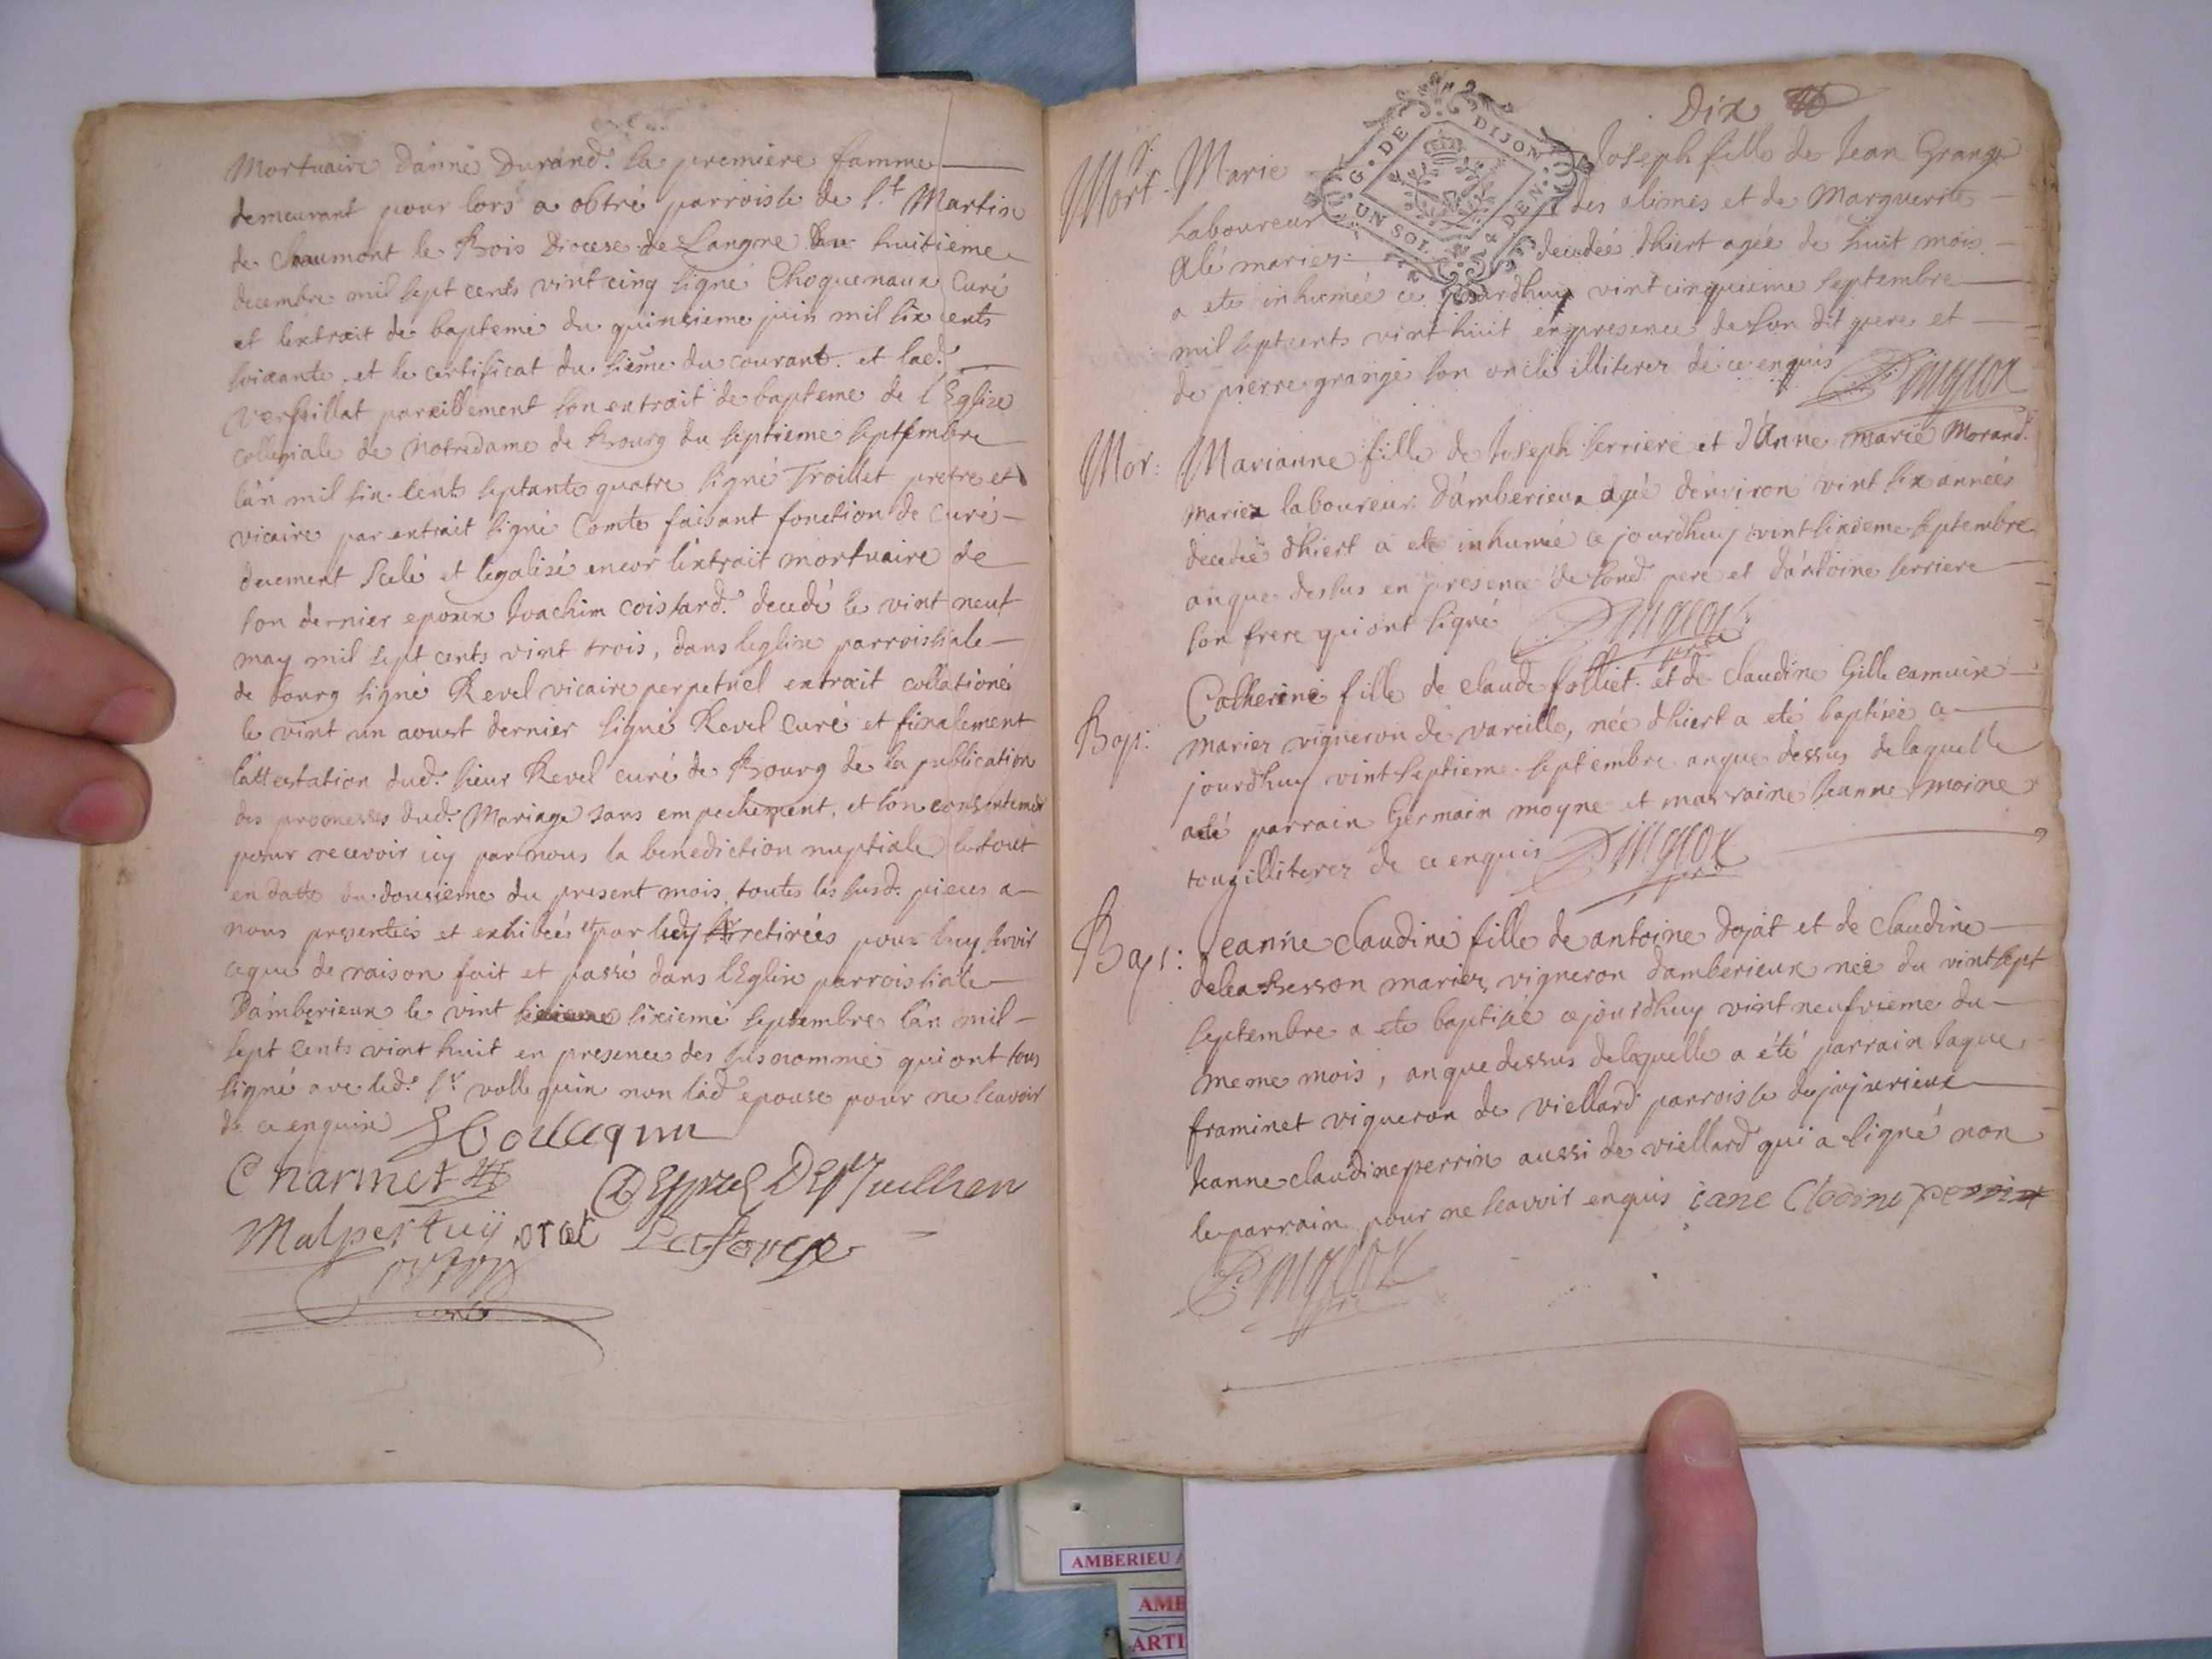 Mortuaire d'anne Durand. la premiere famme
demeurant pour lors a obtré parroisse de st Martin
de Chaumont le Bois Diocese de Langre du huitieme
decembre mil sept cents vint cinq signé Choquenaux Curé
et lextrait de bapteme du quinsieme juin mil six cents
soixante et le certificat du sieme du courant. et lad.
verseillat pareillement son extrait de bapteme de l'Eglise
collegiale de notredame de Bourg du septieme septembre
l'an mil six cents septante quatre signé Troillet pretre et
vicaire par extrait signé Comte faisant fonction de curé
deuement scelé et legalisé encor l'extrait mortuaire de
son dernier epoux Joachim coissard. decedé le vint neuf
may mil sept cents vint trois, dans leglise parroissiale
de bourg signé Revel vicaire perpetuel extrait collationé
le vint un aoust dernier signé Revel curé et finalement
l'attestation dud. sieur Revel curé de Bourg de la publication
des promesses dud. Mariage sans empechement, et son consentement
pour recevoir icy par nous la benediction nuptiale le tout
en datte du dousieme du present mois toutes les susd. pieces a
nous presentées et exhibées et par luy retirées pour luy servir
ce que de raison fait et passé dans l'Eglise parroissiale
D'amberieux le vint sixieme septembre l'an mil
sept cents vint huit en presence des susnommé qui ont tous
signé avec led. sr vollequin non lad epouse pour ne scavoir
de ce enquise
Charmet
Malpertuy
cure
Dix
G. DE DIJON
UN SOL 4 DEN.
Mort. Marie Joseph fille de Jean Grange
laboureur des alimes et de Marguerite
Alé mariez decedée d'hiert agée de huit mois
a ete inhumée ce jourdhuy vint cinquieme septembre
mil sept cents vint huit en presence de son dit pere et
de pierre grange son oncle illiterez de ce enquis
Mor: Marianne fille de Joseph serriere et d'Anne marie Morand
mariez laboureur d'amberieux agée d'environ vint six années
decedée d'hiert a ete inhumée ce jourdhuy vint sixieme septembre
an que dessus en presence de sond pere et d'antoine serriere
son frere qui ont signé
Bap: Catherine fille de claude folliet et de claudine Gillecamuire
mariez vigneron de vareille, née d'hiert a eté baptisée ce
jourdhuy vint septieme septembre an que dessus de laquelle
a eté parrain Germain moyne et marraine Jeanne moine
tous illiterez de ce enquis
Bap: Jeanne claudine fille de antoine dojat et de claudine
mariez vigneron damberieux née du vint sept
septembre a ete baptisée cejourdhuy vint neufvieme du
meme mois, an que dessus de laquelle a été parrain Jaque
framinet vigneron de viellard parroisse de jujurieux
Jeanne claudine perrin aussi de viellard qui a signé non
le parrain pour ne scavoir enquis iane Clodine perrin
AMBERIEU
AMB
ARTI